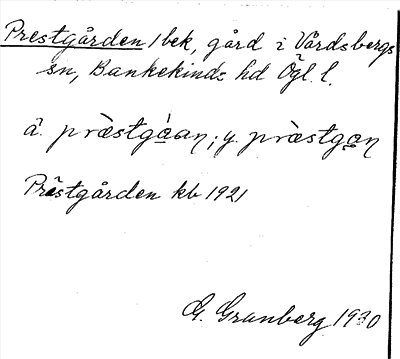 Prestgården /bek, gård i Vårdsbergs
sn, Bankekinds hd Ögl. l.
ä. præ̀stgá̱an; y. præ̀stga̱n
Prästgården kb 1921
G. Granberg 1930